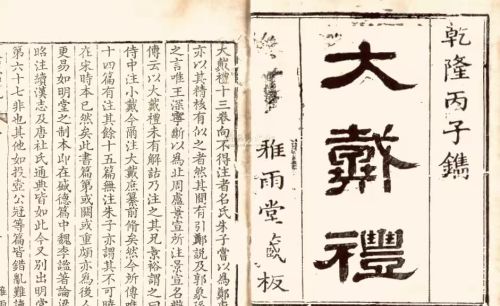 乾隆丙子鐫
大戴禮
雅雨堂藏板
大戴禮十三卷向不得注者名氏朱子嘗以為鄭
亦以其精核有似之者然其間有引鄭說及郭象後
之言唯王深寧斷以為止周盧景宣所注景宣名
傳云以大戴禮未有解詁乃注之其兄景裕謂之曰
侍中注小戴今爾注大戴庶纂前脩矣然今所傳唯
十四篇有注其餘十五篇無注朱子亦謂其不可曉
在宋時本已然矣此書篇第或闕或重頗亦為後人
更易如明堂之制本即在盛德篇中魏李謐著論梁
昭注續漢志及唐杜氏通典皆如此今又別出明堂
第六十七非也其他如投壺公冠等篇皆錯亂難